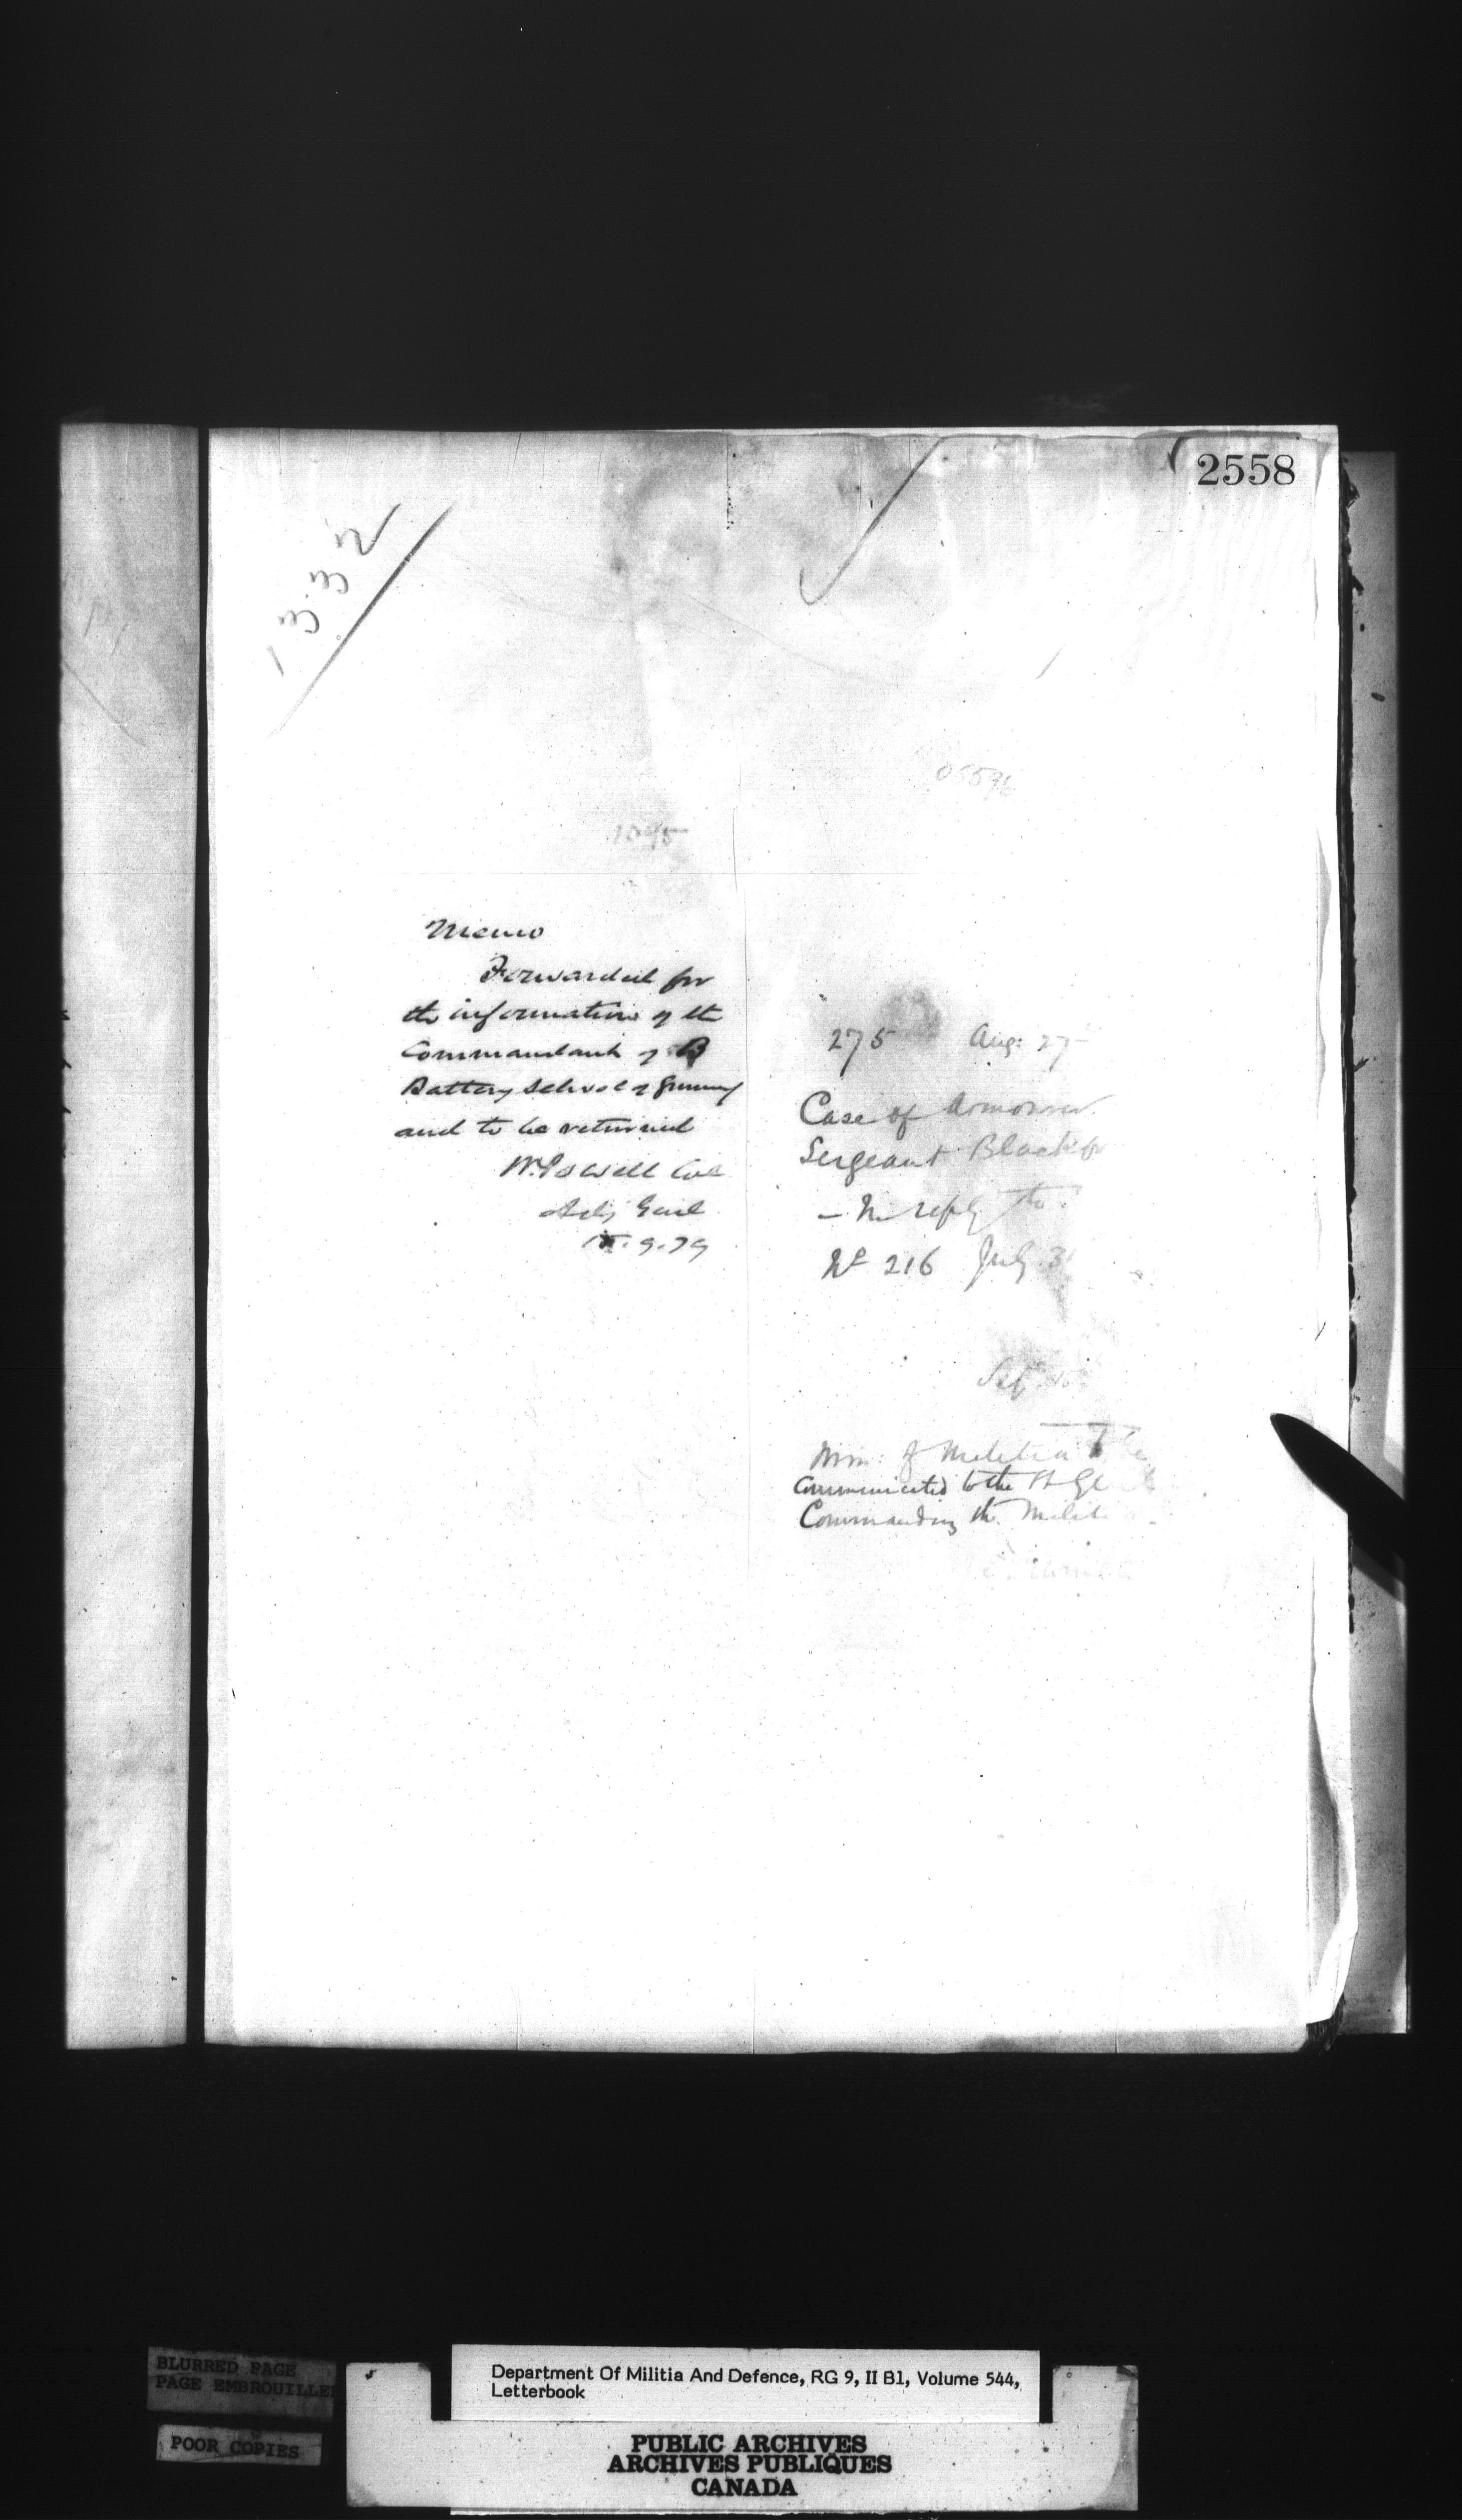 2558
1332
05596
1045
Memo
Forwarded for
the information of the
Commandant of B
Battery School of Gunnery
and to be returned
W. Powell Col
Adj Genl
9.79
275 Aug: 27
Case of Armourer
Sergeant Black
- In reply to
No 216 July 3
Sep
Min: of Militia
Communicated to the
Commanding the Militia
BLURRED PAGE
PAGE EMBROUILLEE
POOR COPIES
Department Of Militia And Defence, RG 9, II B1, Volume 544,
Letterbook
PUBLIC ARCHIVES
ARCHIVES PUBLIQUES
CANADA